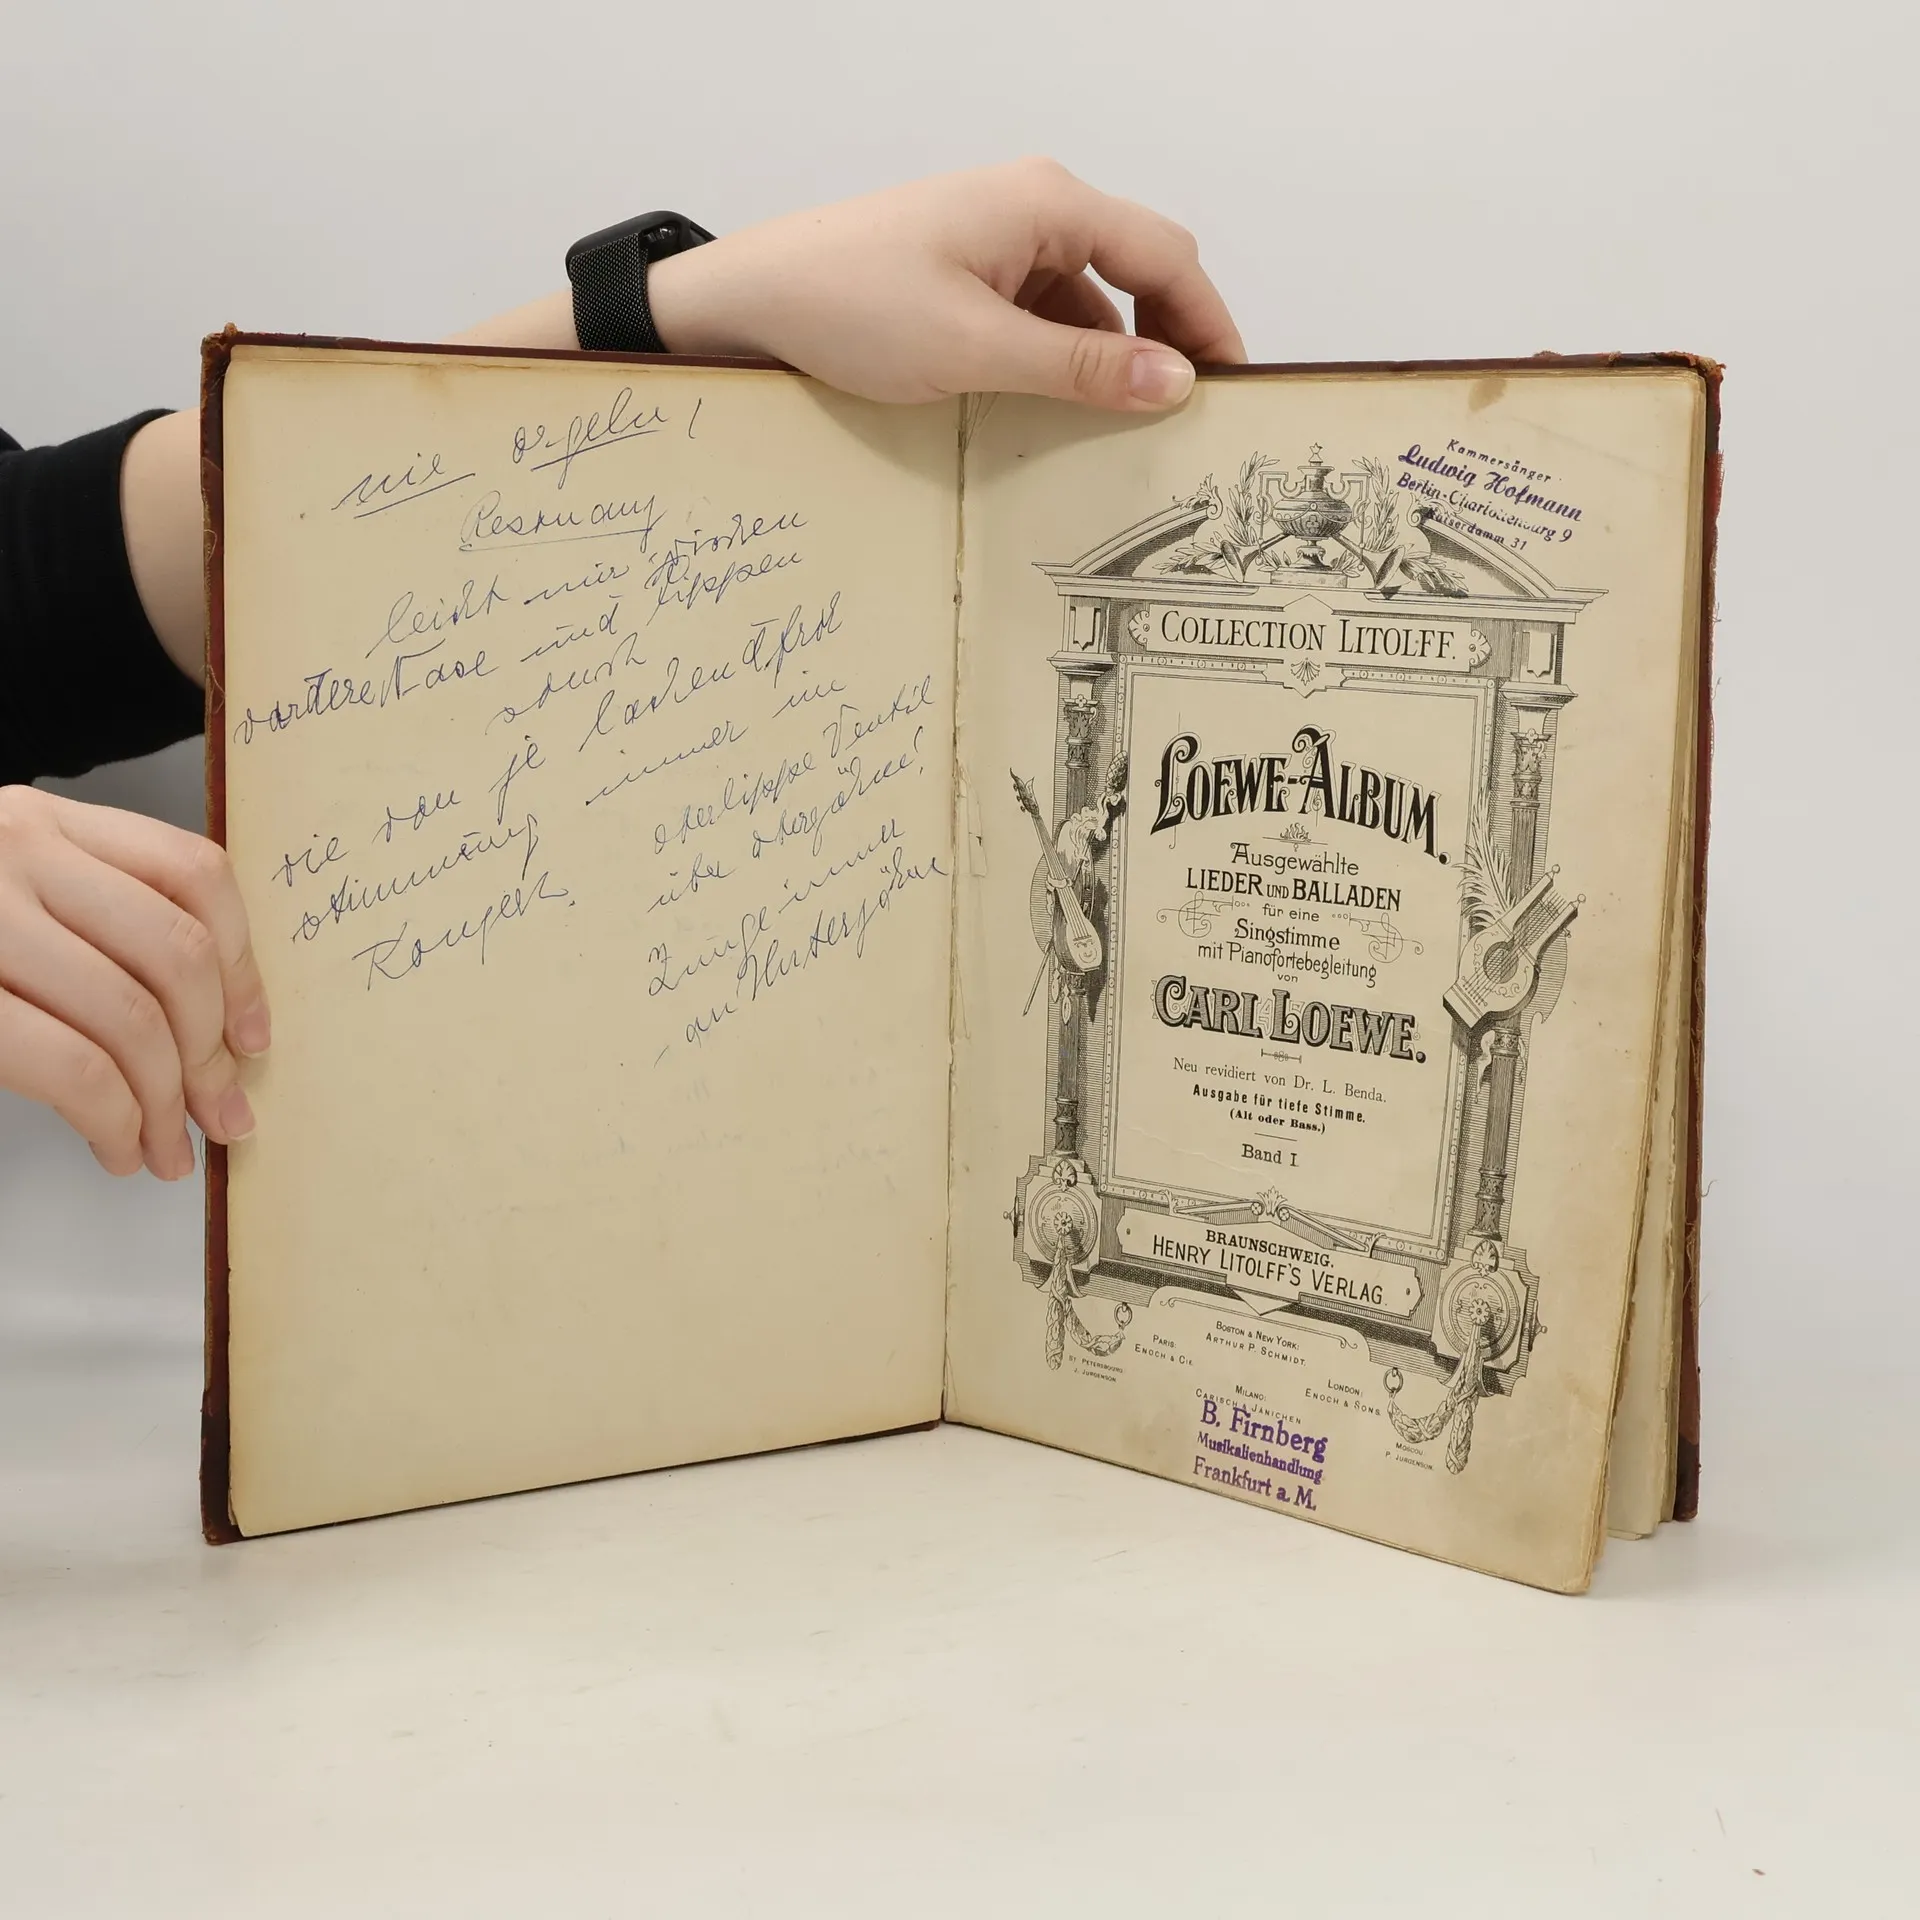 nie orgeln,
leicht nur zwischen
vordere Nase und Lippen
durch
die von je lachend froh
Stimmung immer im
Konzert.
Oberlippe Ventil
über Oberzähne!
Zunge immer
an Unterzähne
Kammersänger
Ludwig Hofmann
Berlin-Charlottenburg 9
Kaiserdamm 31
COLLECTION LITOLFF.
LOEWE-ALBUM.
Ausgewählte
LIEDER UND BALLADEN
für eine
Singstimme
mit Pianofortebegleitung
von
CARL LOEWE.
Neu revidiert von Dr. L. Benda.
Ausgabe für tiefe Stimme.
(Alt oder Bass.)
Band I
BRAUNSCHWEIG.
HENRY LITOLFF'S VERLAG.
BOSTON & NEW YORK:
ARTHUR P. SCHMIDT.
PARIS:
ENOCH & CIE
ST. PETERSBOURG:
J. JURGENSON
LONDON:
ENOCH & SONS.
MILANO:
CARISCH & JÄNICHEN
MOSCOU:
P. JURGENSON.
B. Firnberg
Musikalienhandlung
Frankfurt a. M.